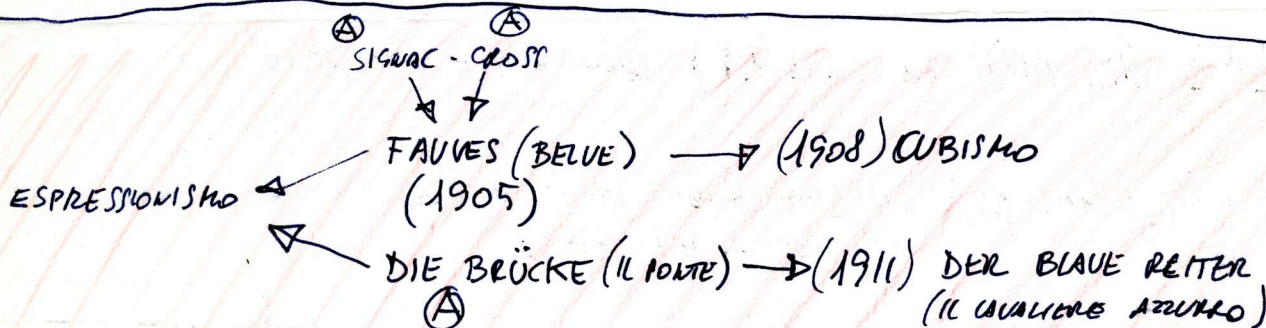 Ⓐ Ⓐ
SIGNAC - CROSS
FAUVES (BELVE) → (1908) CUBISMO
ESPRESSIONISMO (1905)
DIE BRÜCKE (IL PONTE) → (1911) DER BLAUE REITER
Ⓐ (IL CAVALIERE AZZURRO)